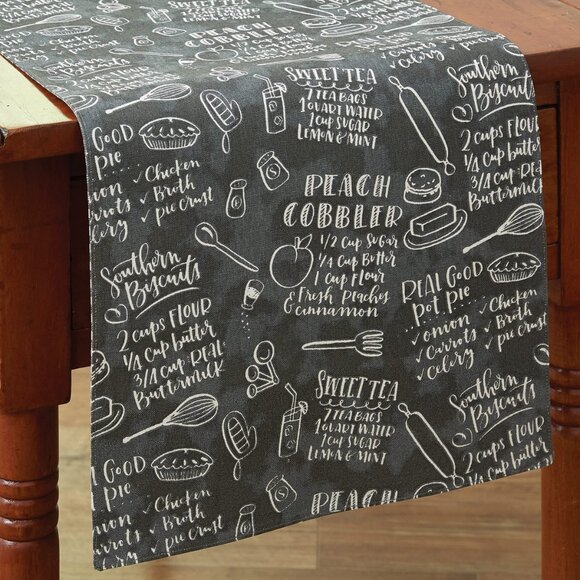 PEACH
COBBLER
SWEET TEA
7 TEA BAGS
1 QUART WATER
1 CUP SUGAR
LEMON & MINT
Southern
Biscuits
2 cups FLOUR
1/4 Cup butter
3/4 CUP REAL
Buttermilk
GOOD
Pie
onion
carrots
celery
✓ Chicken
✓ Broth
✓ pie crust
PEACH
COBBLER
1/2 Cup Sugar
1/4 Cup Butter
1 Cup Flour
& Fresh Peaches
& cinnamon
Southern
Biscuits
2 cups FLOUR
1/4 Cup butter
3/4 CUP REAL
Buttermilk
REAL GOOD
Pot Pie
✓ onion
✓ Carrots
✓ celery
✓ Chicken
✓ Broth
✓ pie crust
SWEET TEA
7 TEA BAGS
1 QUART WATER
1 CUP SUGAR
LEMON & MINT
Southern
Biscuits
2 cups FLOUR
1/4 Cup butter
REAL GOOD
Pie
onion
carrots
celery
✓ Chicken
✓ Broth
✓ pie crust
PEACH